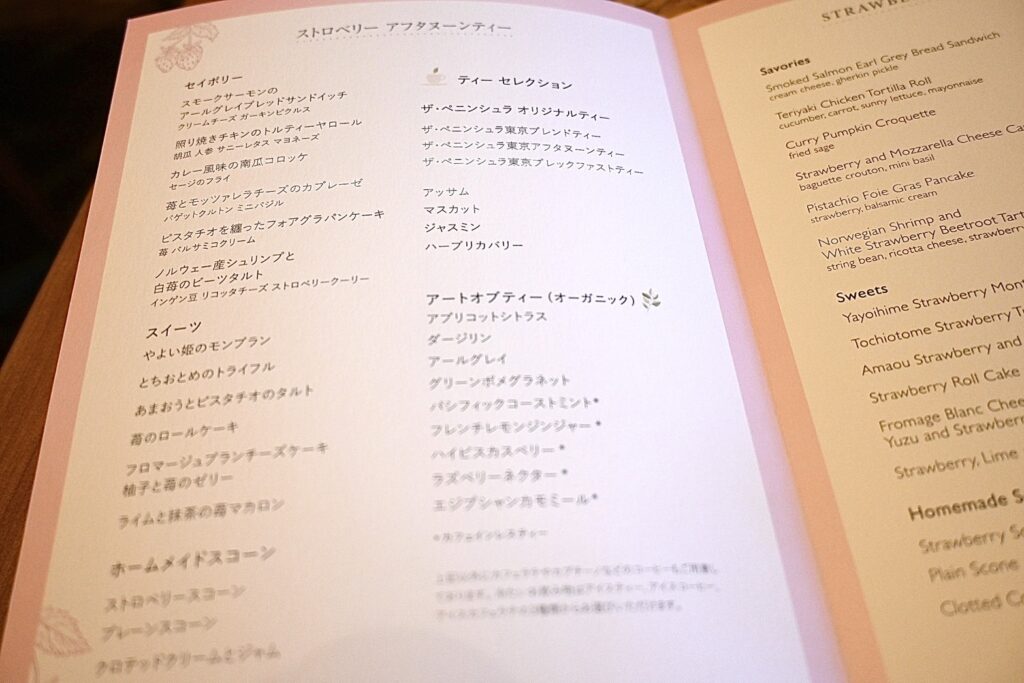 ストロベリー アフタヌーンティー
セイボリー
スモークサーモンの
アールグレイブレッドサンドイッチ
クリームチーズ ガーキンピクルス
照り焼きチキンのトルティーヤロール
胡瓜 人参 サニーレタス マヨネーズ
カレー風味の南瓜コロッケ
セージのフライ
苺とモッツァレラチーズのカプレーゼ
バゲットクルトン ミニバジル
ピスタチオを纏ったフォアグラパンケーキ
苺 バルサミコクリーム
ノルウェー産シュリンプと
白苺のビーツタルト
インゲン豆 リコッタチーズ ストロベリークーリー
スイーツ
やよい姫のモンブラン
とちおとめのトライフル
あまおうとピスタチオのタルト
苺のロールケーキ
フロマージュブランチーズケーキ
柚子と苺のゼリー
ライムと抹茶の苺マカロン
ホームメイドスコーン
ストロベリースコーン
プレーンスコーン
クロテッドクリームとジャム
ティー セレクション
ザ・ペニンシュラ オリジナルティー
ザ・ペニンシュラ東京ブレンドティー
ザ・ペニンシュラ東京アフタヌーンティー
ザ・ペニンシュラ東京ブレックファストティー
アッサム
マスカット
ジャスミン
ハーブリカバリー
アートオブティー（オーガニック）
アプリコットシトラス
ダージリン
アールグレイ
グリーンポメグラネット
パシフィックコーストミント*
フレンチレモンジンジャー*
ハイビスカスベリー*
ラズベリーネクター*
エジプシャンカモミール*
*カフェインレスティー
STRAWBE
Savories
Smoked Salmon Earl Grey Bread Sandwich
cream cheese, gherkin pickle
Teriyaki Chicken Tortilla Roll
cucumber, carrot, sunny lettuce, mayonnaise
Curry Pumpkin Croquette
fried sage
Strawberry and Mozzarella Cheese Ca
baguette crouton, mini basil
Pistachio Foie Gras Pancake
strawberry, balsamic cream
Norwegian Shrimp and
White Strawberry Beetroot Tart
string bean, ricotta cheese, strawberry
Sweets
Yayoihime Strawberry Mon
Tochiotome Strawberry T
Amaou Strawberry and
Strawberry Roll Cake
Fromage Blanc Chee
Yuzu and Strawberr
Strawberry, Lime
Homemade S
Strawberry Sc
Plain Scone
Clotted C